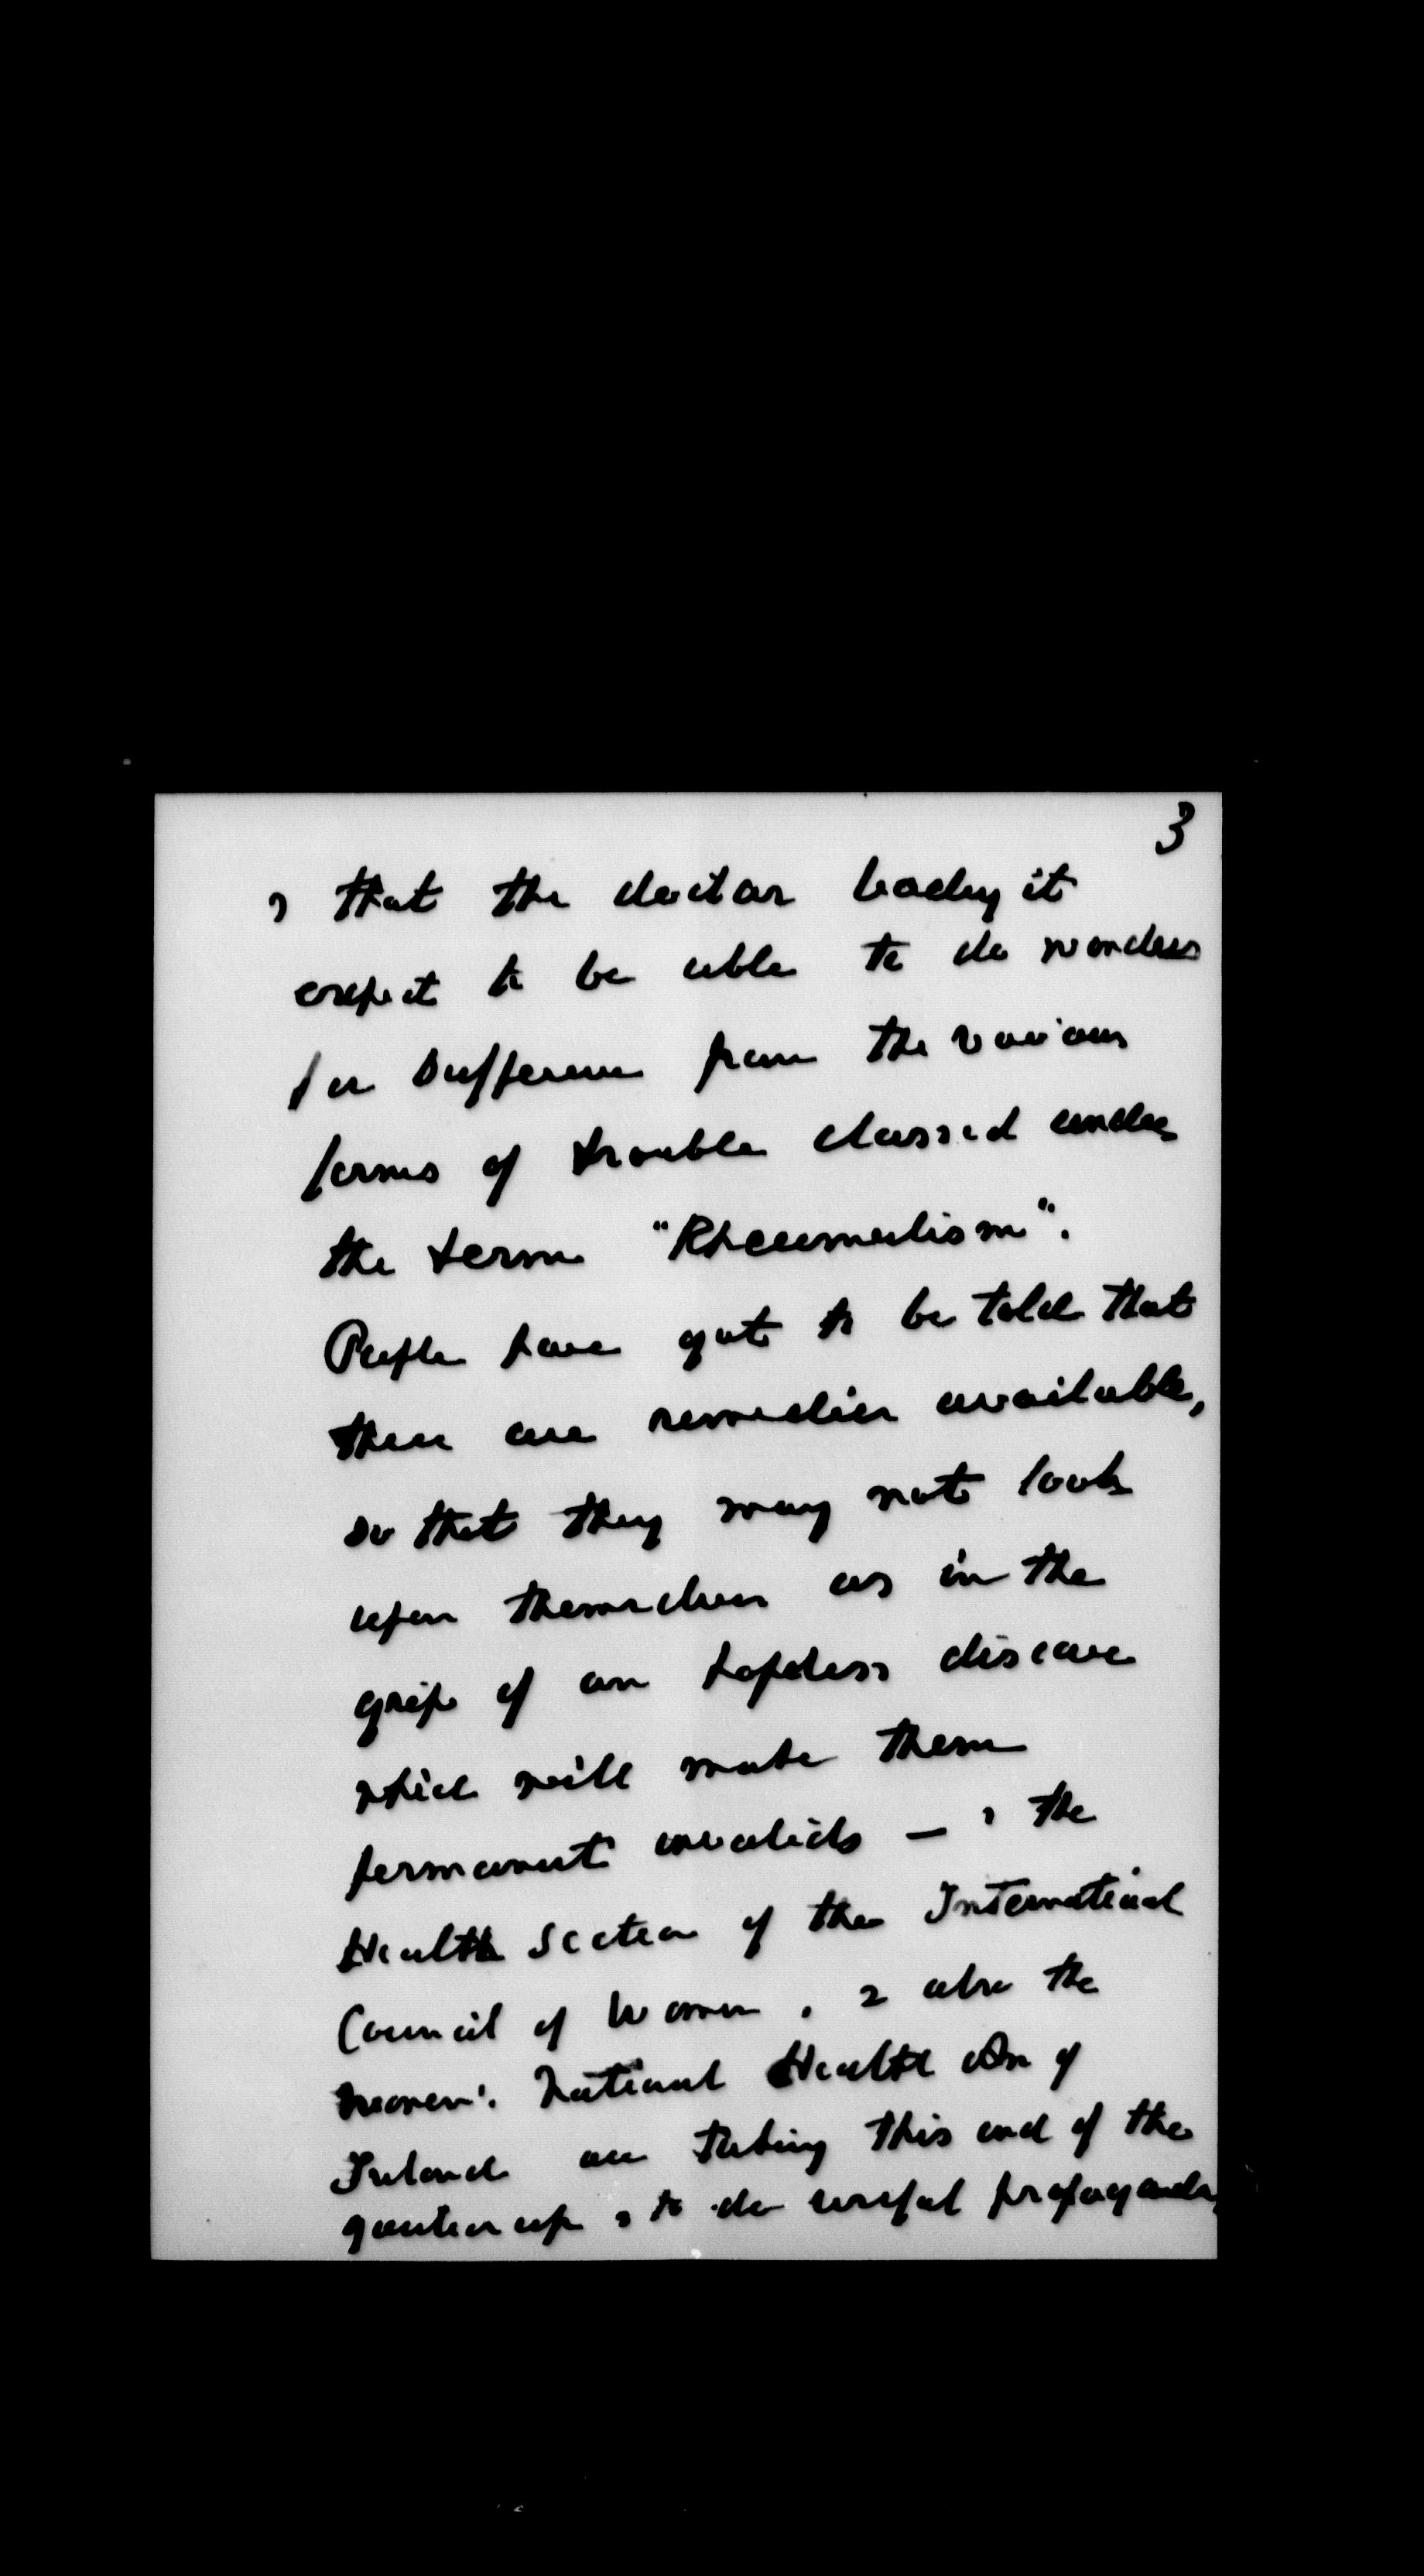 3
& that the doctor leading it
expect to be able to do wonders
for sufferers from the various
forms of trouble classed under
the term "Rheumatism".
People have got to be told that
there are remedies available,
so that they may not look
upon themselves as in the
grip of an hopeless disease
which will make them
permanent invalids — & the
Health Section of the International
Council of Women, & also the
Women's National Health Assn of
Ireland are taking this end of the
question up, & to do useful propaganda,